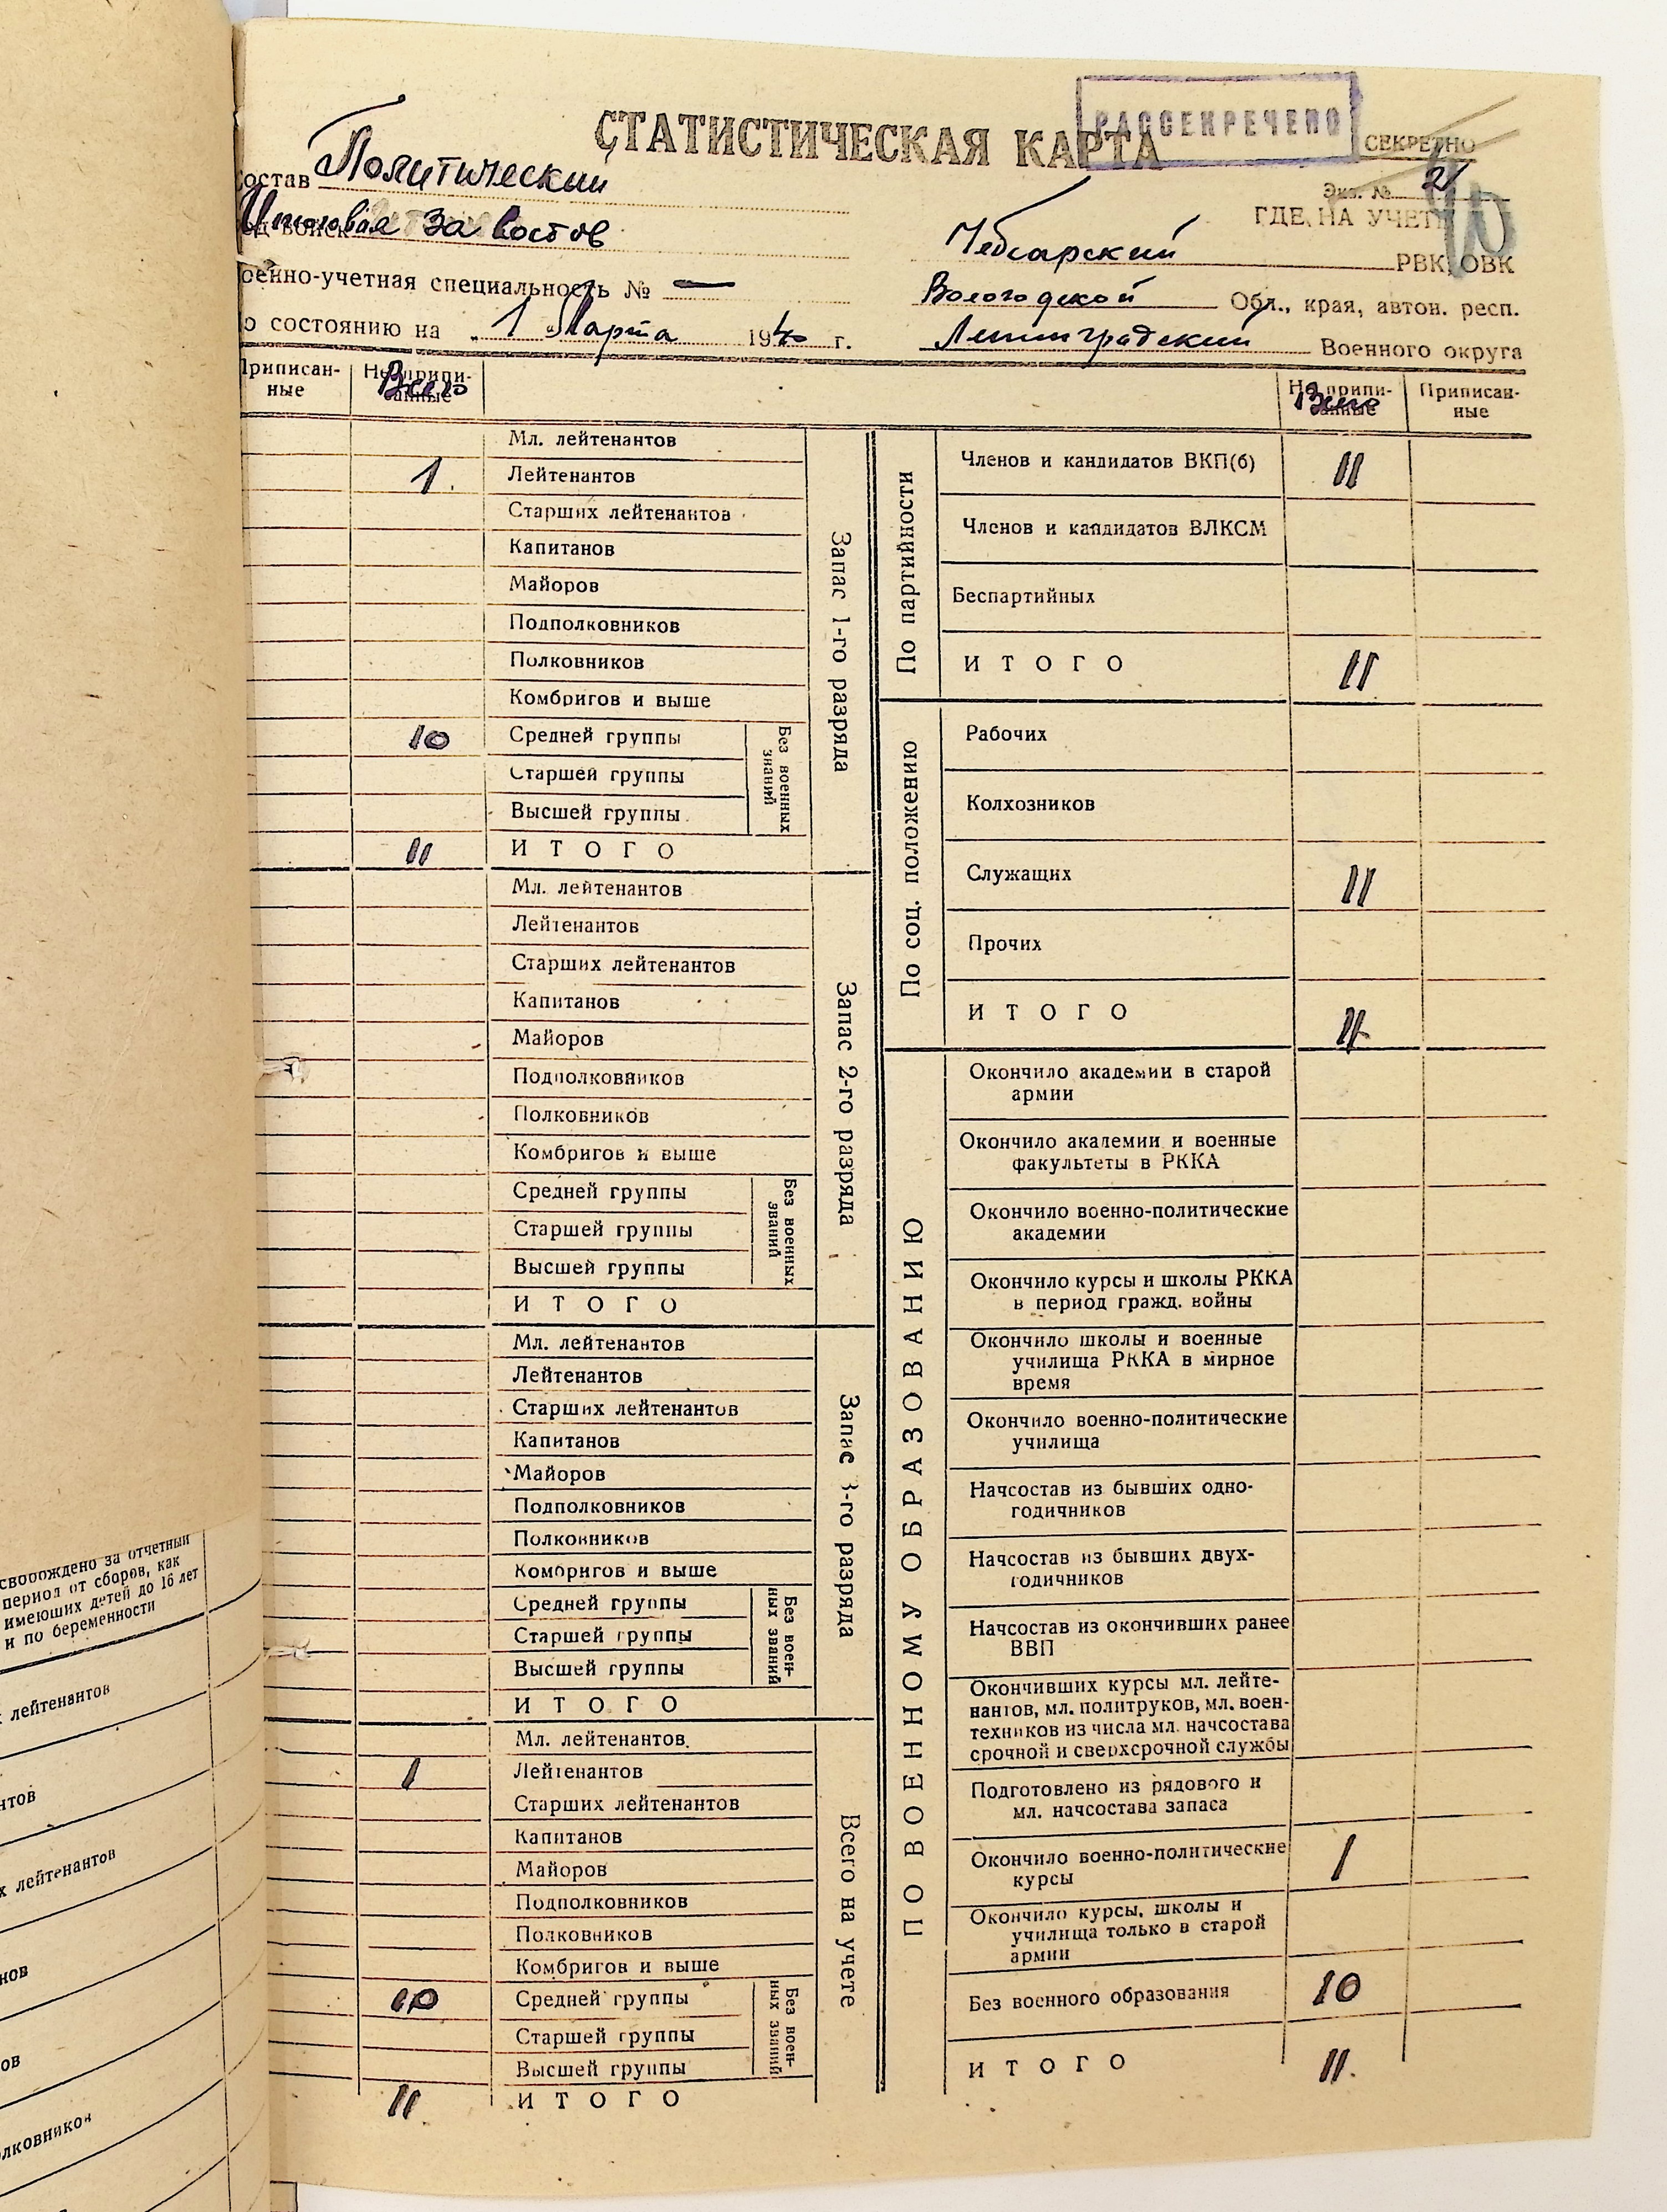 СТАТИСТИЧЕСКАЯ КАРТА
РАССЕКРЕЧЕНО
СЕКРЕТНО
Экз. № 2
40
состав Политический
Итоговая за состов
военно-учетная специальность № —
по состоянию на „ 1 " Марта 1940 г.
ГДЕ НА УЧЕТЕ
Чебсарский РВК, ОВК
Вологодской Обл., края, автон. респ.
Ленинградский Военного округа
Приписан-
ные
Неприпи-
санные
Всего
Мл. лейтенантов
1. Лейтенантов
Старших лейтенантов
Капитанов
Майоров
Подполковников
Полковников
Комбригов и выше
10 Средней группы
Старшей группы
Высшей группы
Без военных
знаний
11 ИТОГО
Запас 1-го разряда
Мл. лейтенантов
Лейтенантов
Старших лейтенантов
Капитанов
Майоров
Подполковников
Полковников
Комбригов и выше
Средней группы
Старшей группы
Высшей группы
Без военных
званий
ИТОГО
Запас 2-го разряда
Мл. лейтенантов
Лейтенантов
Старших лейтенантов
Капитанов
Майоров
Подполковников
Полковников
Комбригов и выше
Средней группы
Старшей группы
Высшей группы
Без воен-
ных званий
ИТОГО
Запас 3-го разряда
Мл. лейтенантов
1 Лейтенантов
Старших лейтенантов
Капитанов
Майоров
Подполковников
Полковников
Комбригов и выше
10 Средней группы
Старшей группы
Высшей группы
Без воен-
ных званий
11 ИТОГО
Всего на учете
Неприпи-
санные
Всего
Приписан-
ные
По партийности
Членов и кандидатов ВКП(б) 11
Членов и кандидатов ВЛКСМ
Беспартийных
ИТОГО 11
По соц. положению
Рабочих
Колхозников
Служащих 11
Прочих
ИТОГО 11
ПО ВОЕННОМУ ОБРАЗОВАНИЮ
Окончило академии в старой
армии
Окончило академии и военные
факультеты в РККА
Окончило военно-политические
академии
Окончило курсы и школы РККА
в период гражд. войны
Окончило школы и военные
училища РККА в мирное
время
Окончило военно-политические
училища
Начсостав из бывших одно-
годичников
Начсостав из бывших двух-
годичников
Начсостав из окончивших ранее
ВВП
Окончивших курсы мл. лейте-
нантов, мл. политруков, мл. воен-
техников из числа мл. начсостава
срочной и сверхсрочной службы
Подготовлено из рядового и
мл. начсостава запаса
Окончило военно-политические
курсы 1
Окончило курсы, школы и
училища только в старой
армии
Без военного образования 10
ИТОГО 11.
свобождено за отчетный
период от сборов, как
имеющих детей до 16 лет
и по беременности
х лейтенантов
нтов
х лейтенантов
нов
ов
олковников